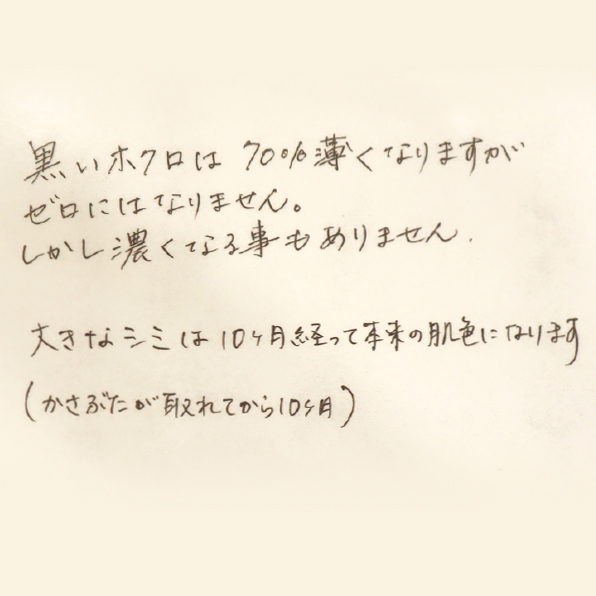 黒いホクロは70%薄くなりますが
ゼロにはなりません。
しかし濃くなる事もありません.
大きなシミは10ヶ月経って本来の肌色になります
(かさぶたが取れてから10ヶ月)